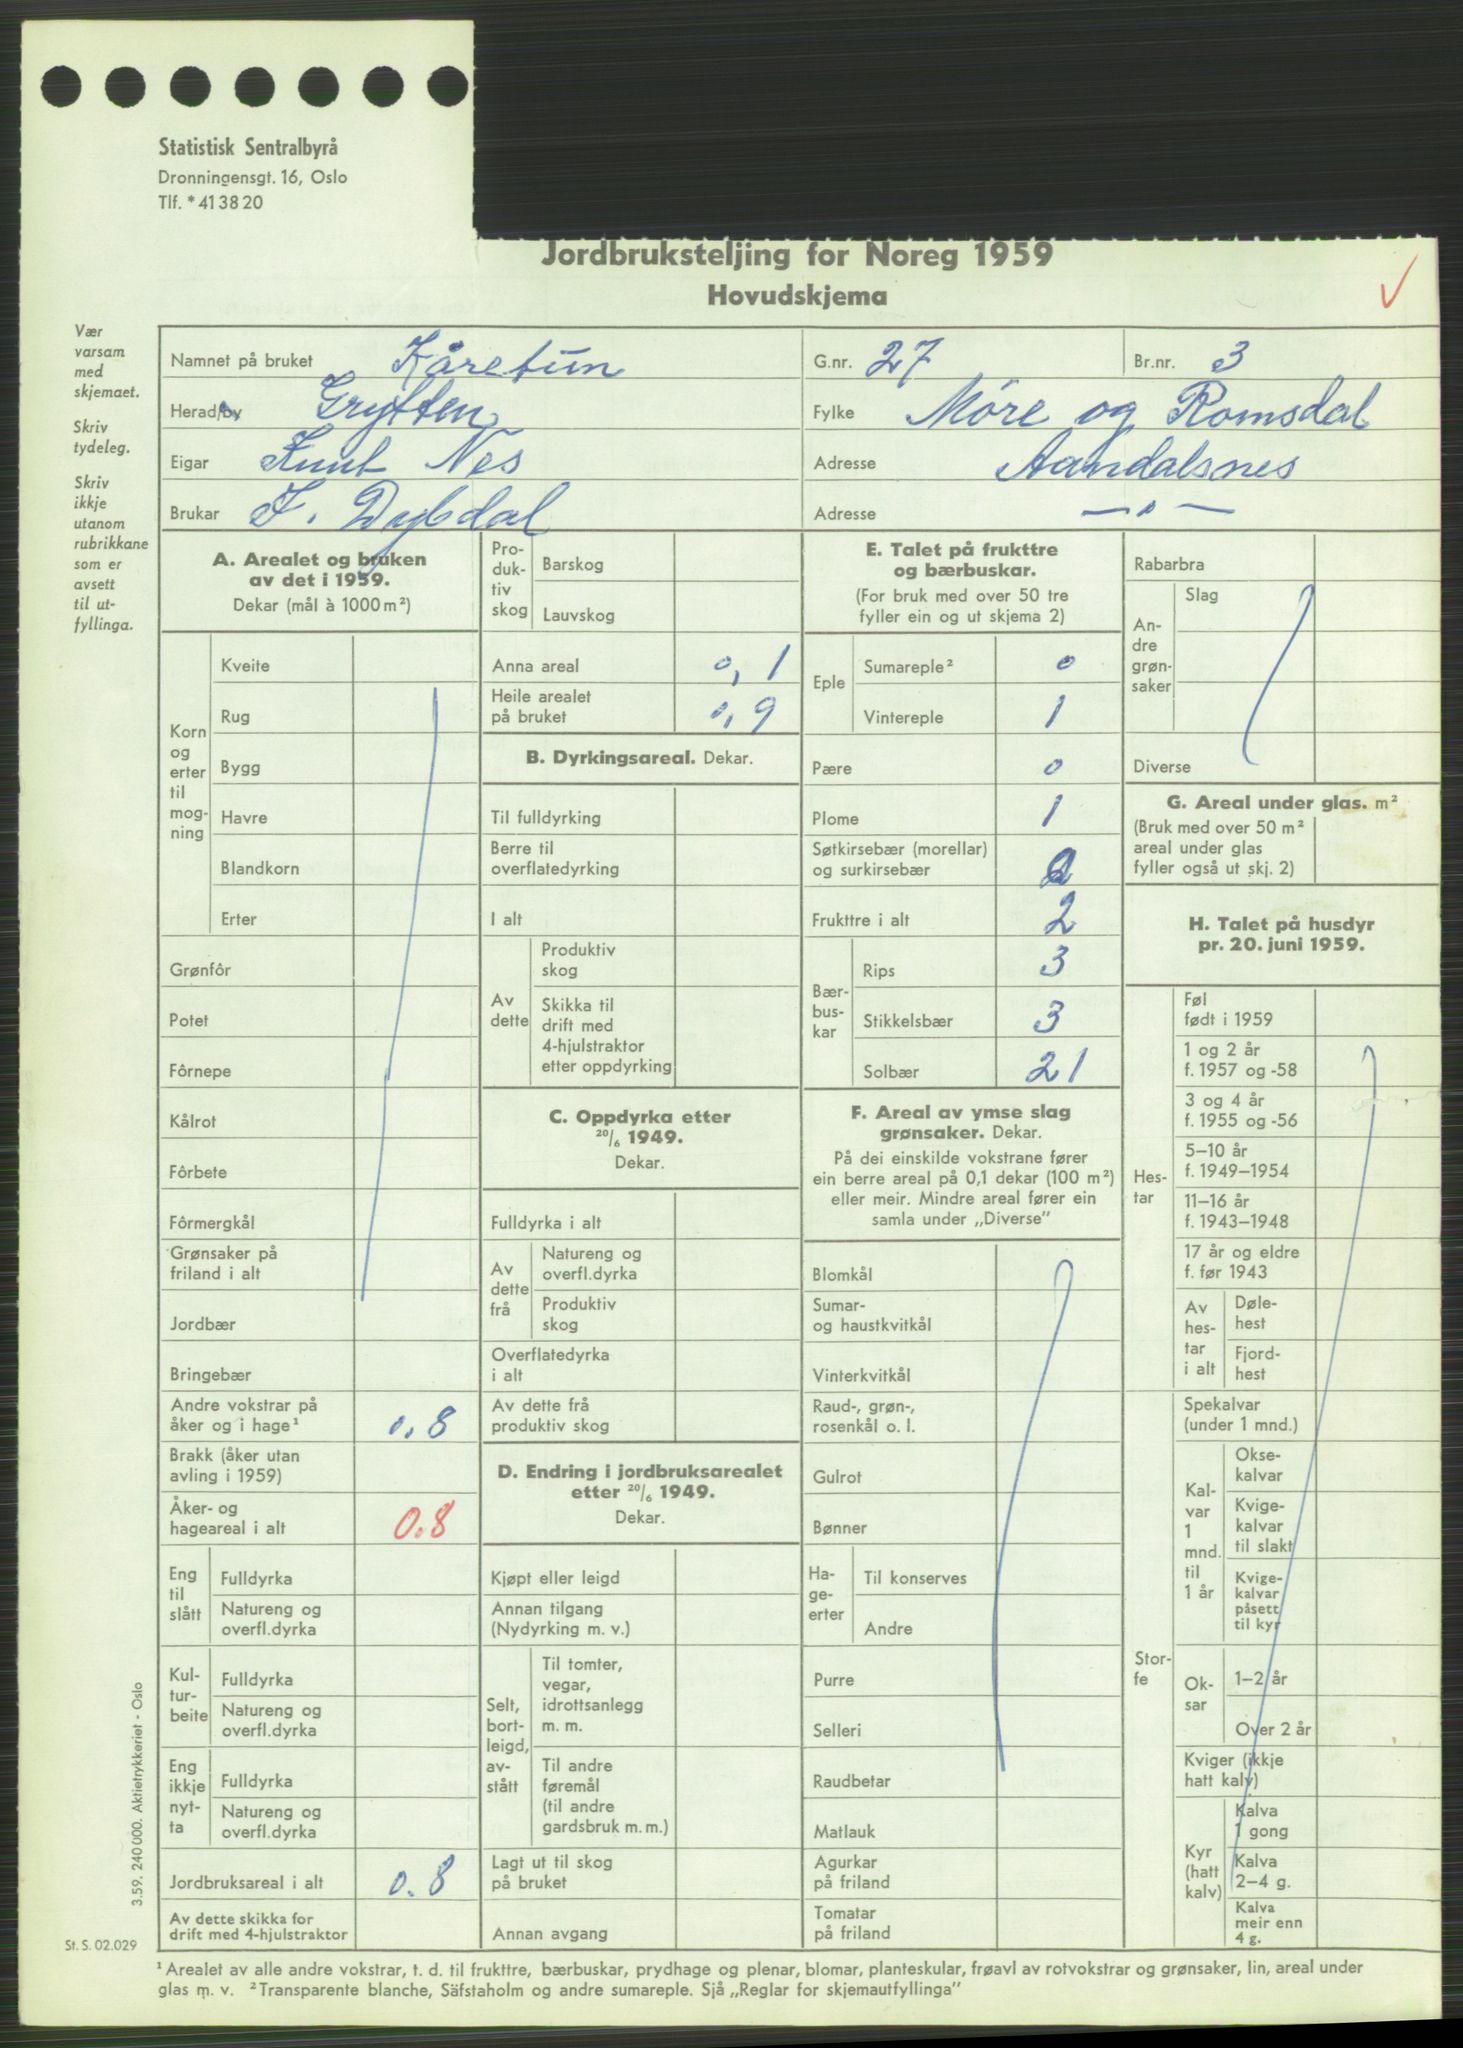 Statistisk Sentralbyrå
Dronningensgt. 16, Oslo
Tlf. * 41 38 20
Jordbruksteljing for Noreg 1959
Hovudskjema
Vær
varsam
med
skjemaet.
Skriv
tydeleg.
Skriv
ikkje
utanom
rubrikkane
som er
avsett
til ut-
fyllinga.
Namnet på bruket Kåretun G.nr. 27 Br.nr. 3
Herad/by Grytten Fylke Möre og Romsdal
Eigar Knut Nes Adresse Aandalsnes
Brukar F. Dybdal Adresse — „ —
A. Arealet og bruken
av det i 1959.
Dekar (mål à 1000 m²)
Korn
og
erter
til
mog-
ning
Kveite
Rug
Bygg
Havre
Blandkorn
Erter
Grønfôr
Potet
Fôrnepe
Kålrot
Fôrbete
Fôrmergkål
Grønsaker på
friland i alt
Jordbær
Bringebær
Andre vokstrar på
åker og i hage¹ 0.8
Brakk (åker utan
avling i 1959)
Åker- og
hageareal i alt 0.8
Eng
til
slått
Fulldyrka
Natureng og
overfl.dyrka
Kul-
tur-
beite
Fulldyrka
Natureng og
overfl.dyrka
Eng
ikkje
nyt-
ta
Fulldyrka
Natureng og
overfl.dyrka
Jordbruksareal i alt 0.8
Av dette skikka for
drift med 4-hjulstraktor
Pro-
duk-
tiv
skog
Barskog
Lauvskog
Anna areal 0,1
Heile arealet
på bruket 0,9
B. Dyrkingsareal. Dekar.
Til fulldyrking
Berre til
overflatedyrking
I alt
Av
dette
Produktiv
skog
Skikka til
drift med
4-hjulstraktor
etter oppdyrking
C. Oppdyrka etter
20/6 1949.
Dekar.
Fulldyrka i alt
Av
dette
frå
Natureng og
overfl.dyrka
Produktiv
skog
Overflatedyrka
i alt
Av dette frå
produktiv skog
D. Endring i jordbruksarealet
etter 20/6 1949.
Dekar.
Kjøpt eller leigd
Annan tilgang
(Nydyrking m. v.)
Selt,
bort-
leigd,
av-
stått
Til tomter,
vegar,
idrottsanlegg
m. m.
Til andre
føremål
(til andre
gardsbruk m. m.)
Lagt ut til skog
på bruket
Annan avgang
E. Talet på frukttre
og bærbuskar.
(For bruk med over 50 tre
fyller ein og ut skjema 2)
Eple
Sumareple² 0
Vintereple 1
Pære 0
Plome 1
Søtkirsebær (morellar)
og surkirsebær
Frukttre i alt 2
Bær-
bus-
kar
Rips 3
Stikkelsbær 3
Solbær 21
F. Areal av ymse slag
grønsaker. Dekar.
På dei einskilde vokstrane fører
ein berre areal på 0,1 dekar (100 m²)
eller meir. Mindre areal fører ein
samla under „Diverse”
Blomkål
Sumar-
og haustkvitkål
Vinterkvitkål
Raud-, grøn-,
rosenkål o. l.
Gulrot
Bønner
Ha-
ge-
erter
Til konserves
Andre
Purre
Selleri
Raudbetar
Matlauk
Agurkar
på friland
Tomatar
på friland
Rabarbra
An-
dre
grøn-
saker
Slag
Diverse
G. Areal under glas. m²
(Bruk med over 50 m²
areal under glas
fyller også ut skj. 2)
H. Talet på husdyr
pr. 20. juni 1959.
Hes-
tar
Føl
født i 1959
1 og 2 år
f. 1957 og -58
3 og 4 år
f. 1955 og -56
5–10 år
f. 1949–1954
11–16 år
f. 1943–1948
17 år og eldre
f. før 1943
Av
hes-
tar
i alt
Døle-
hest
Fjord-
hest
Stor-
fe
Spekalvar
(under 1 mnd.)
Kal-
var
1
mnd.
til
1 år
Okse-
kalvar
Kvige-
kalvar
til slakt
Kvige-
kalvar
påsett
til kyr
Ok-
sar
1–2 år
Over 2 år
Kviger (ikkje
hatt kalv)
Kyr
(hatt
kalv)
Kalva
1 gong
Kalva
2–4 g.
Kalva
meir enn
4 g.
3.59. 240 000. Aktietrykkeriet - Oslo
St. S. 02.029
¹ Arealet av alle andre vokstrar, t. d. til frukttre, bærbuskar, prydhage og plenar, blomar, planteskular, frøavl av rotvokstrar og grønsaker, lin, areal under
glas m. v. ² Transparente blanche, Säfstaholm og andre sumareple. Sjå „Reglar for skjemautfyllinga”